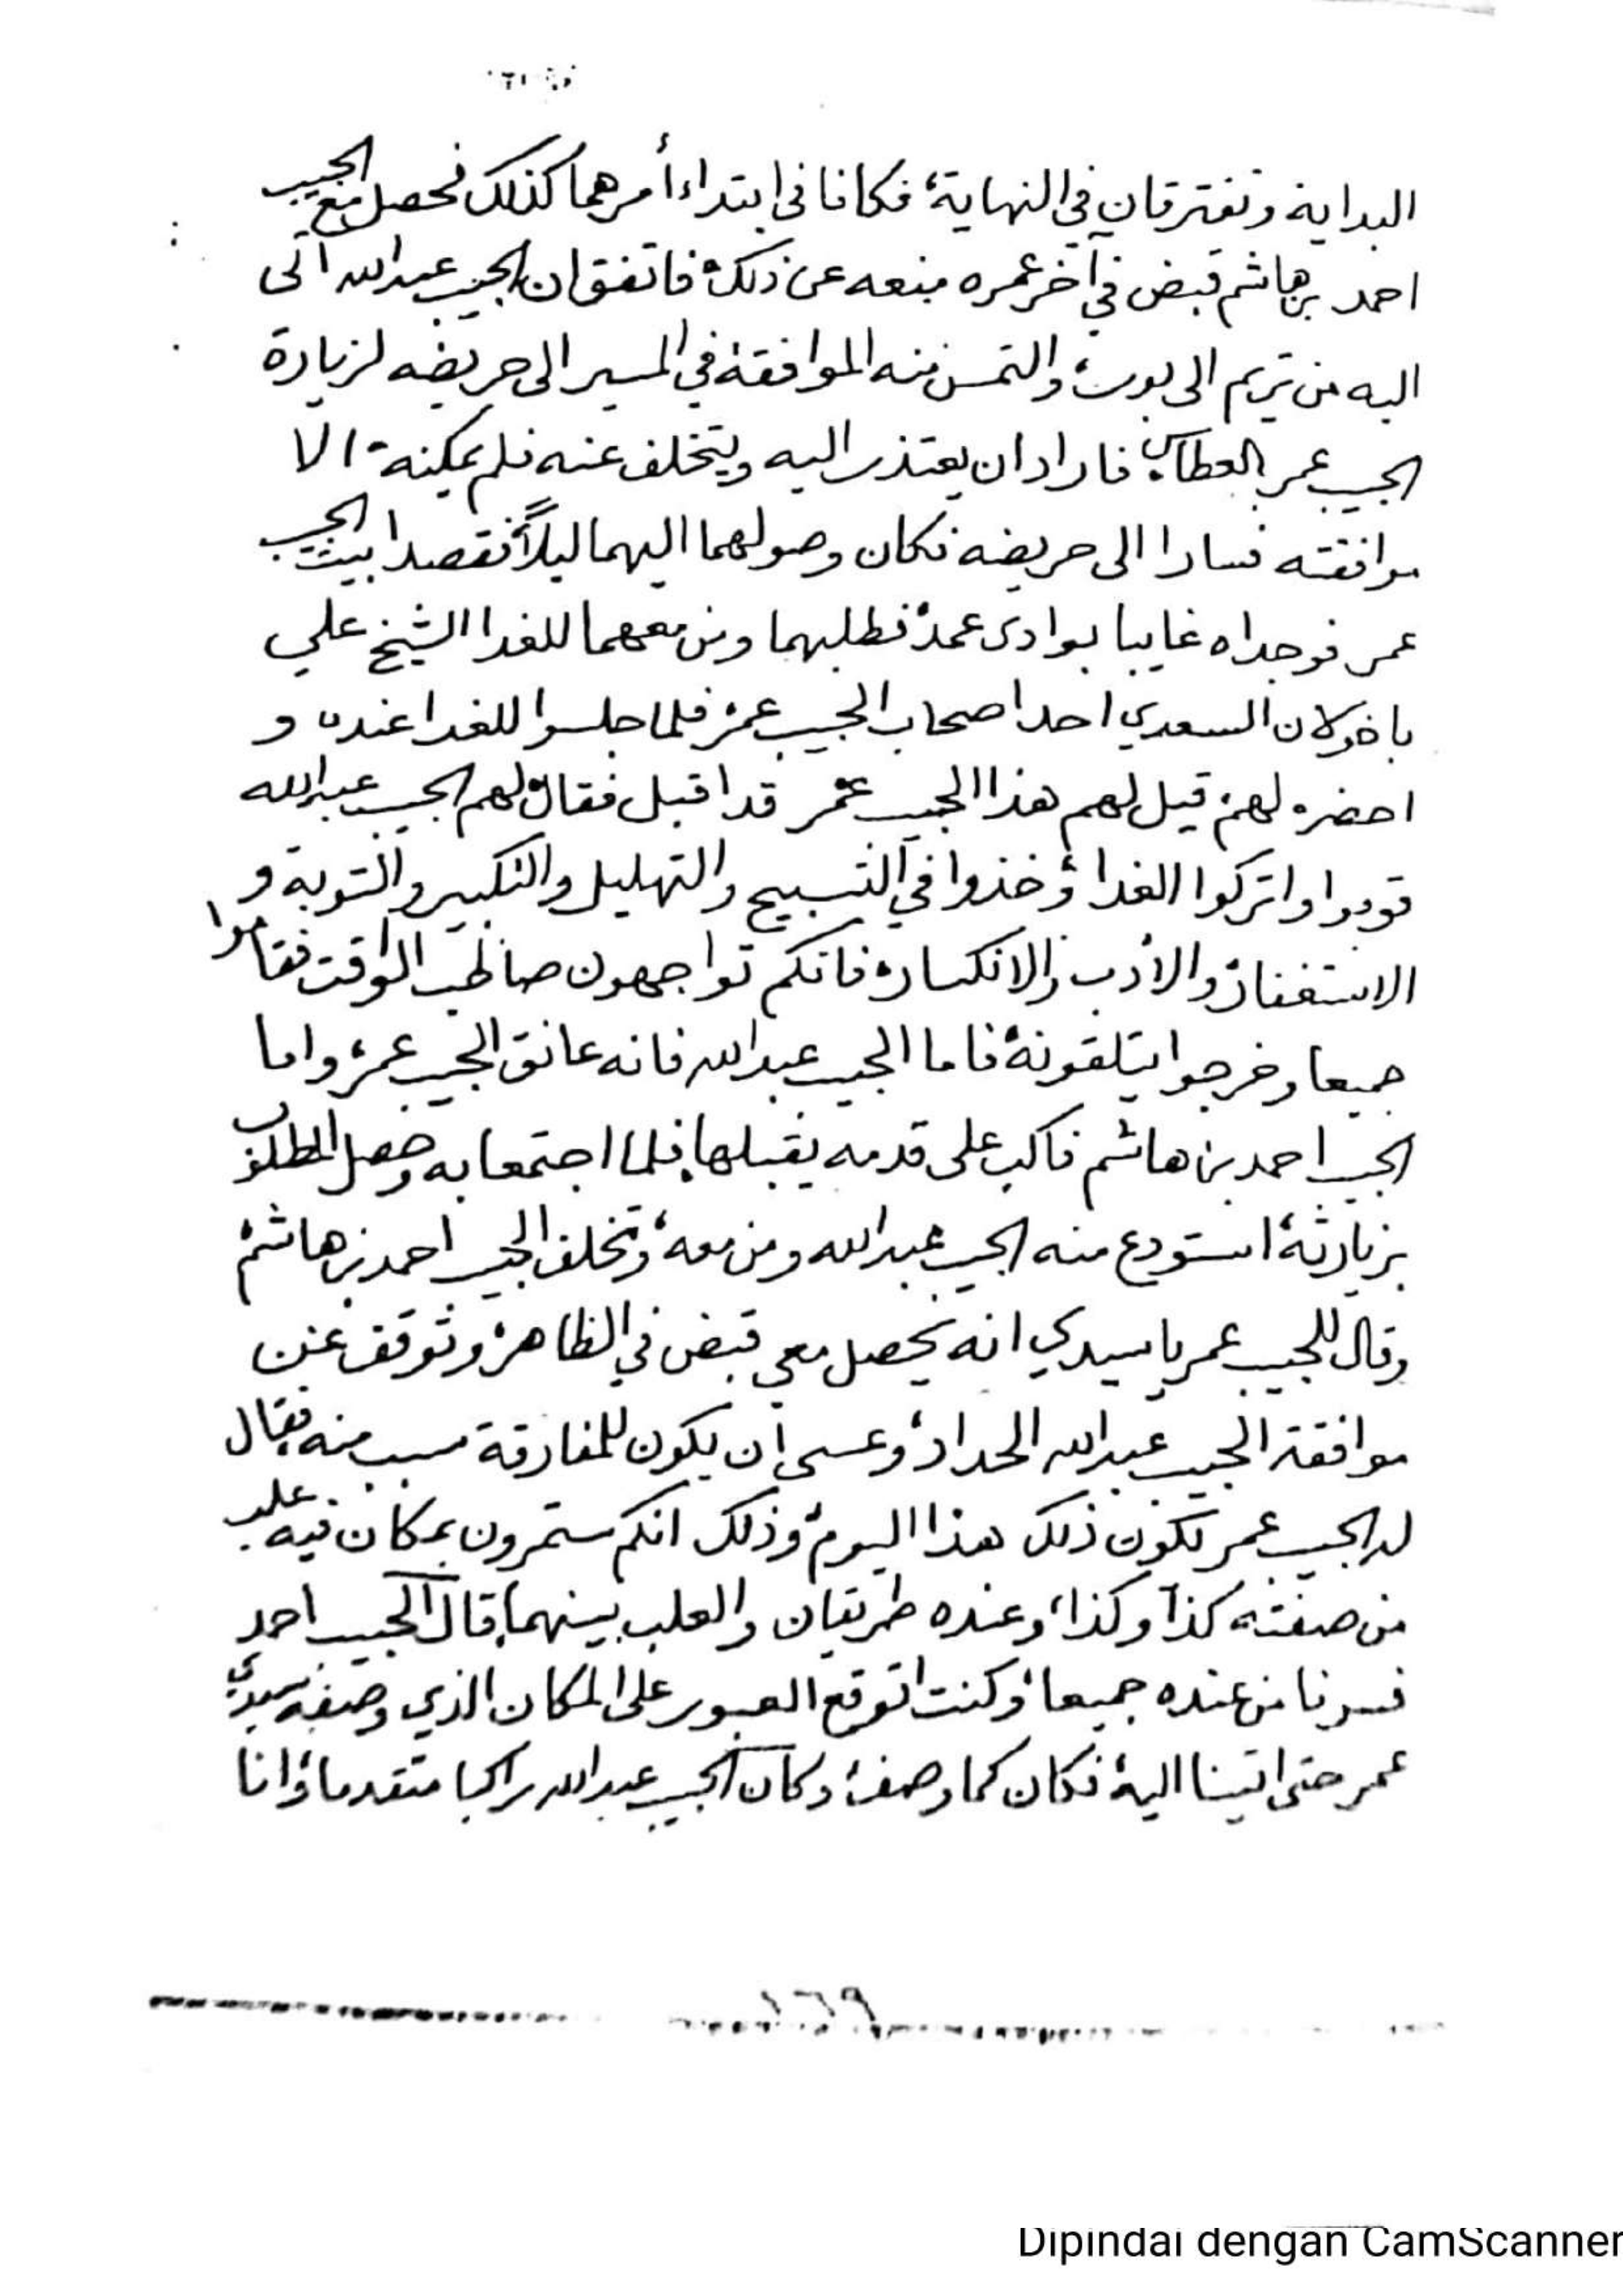 البداية وتفترقان في النهاية، فكانا في ابتداء أمرهما كذلك فحصل مع الحبيب
احمد بن هاشم قبض في آخر عمره منعه عن ذلك، فاتفق ان الحبيب عبدالله اتى
اليه من تريم الى بور، والتمس منه الموافقة في المسير الى حريضه لزيارة
الحبيب عمر العطاس، فاراد ان يعتذر اليه ويتخلف عنه فلم يمكنه الا
موافقته فسارا الى حريضه فكان وصولهما اليهما ليلاً، فقصدا بيت الحبيب
عمر فوجداه غايبا بوادى عمد، فطلبهما ومن معهما للغدا الشيخ علي
باخولان السعدي احد اصحاب الحبيب عمر، فلما جلسوا للغدا عنده و
احضره لهم، قيل لهم هذا الحبيب عمر قد اقبل فقال لهم الحبيب عبدالله
قوموا واتركوا الغدا، وخذوا في التسبيح والتهليل والتكبير والتوبة و
الاستغفار، والأدب والانكسار، فانكم تواجهون صاحب الوقت فقاموا
جميعا وخرجوا يتلقونه، فاما الحبيب عبدالله فانه عانق الحبيب عمر، واما
الحبيب احمد بن هاشم فاكب على قدمه يقبلها، فلما اجتمعا به وحصل المطلوب
بزيارته، استودع منه الحبيب عبدالله ومن معه، وتخلف الحبيب احمد بن هاشم،
وقال للحبيب عمر يا سيدي انه يحصل معي قبض في الظاهر، وتوقف عن
موافقة الحبيب عبدالله الحداد، وعسى ان يكون للمفارقة سبب منه فقال
له الحبيب عمر تكون ذلك هذا اليوم، وذلك انكم ستمرون بمكان فيه علب
من صفته كذا وكذا، وعنده طريقان والعلب بينهما، قال الحبيب احمد
فسرنا من عنده جميعا، وكنت اتوقع العبور على المكان الذي وصفه سيدي
عمر حتى اتينا اليه، فكان كما وصف، وكان الحبيب عبدالله راكبا متقدما، وانا
Dipindai dengan CamScanner